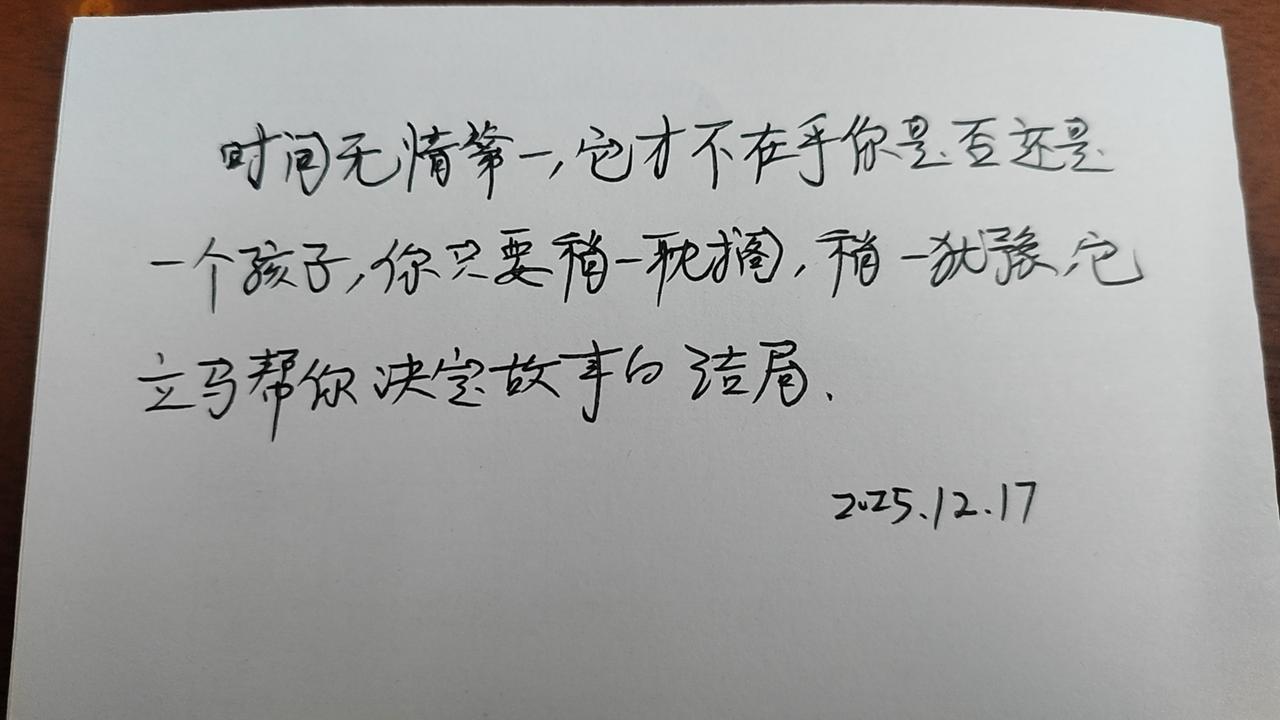 时间无情第一,它才不在乎你是否还是
一个孩子,你只要稍一耽搁,稍一犹豫,它
立马帮你决定故事的结局.
2025.12.17